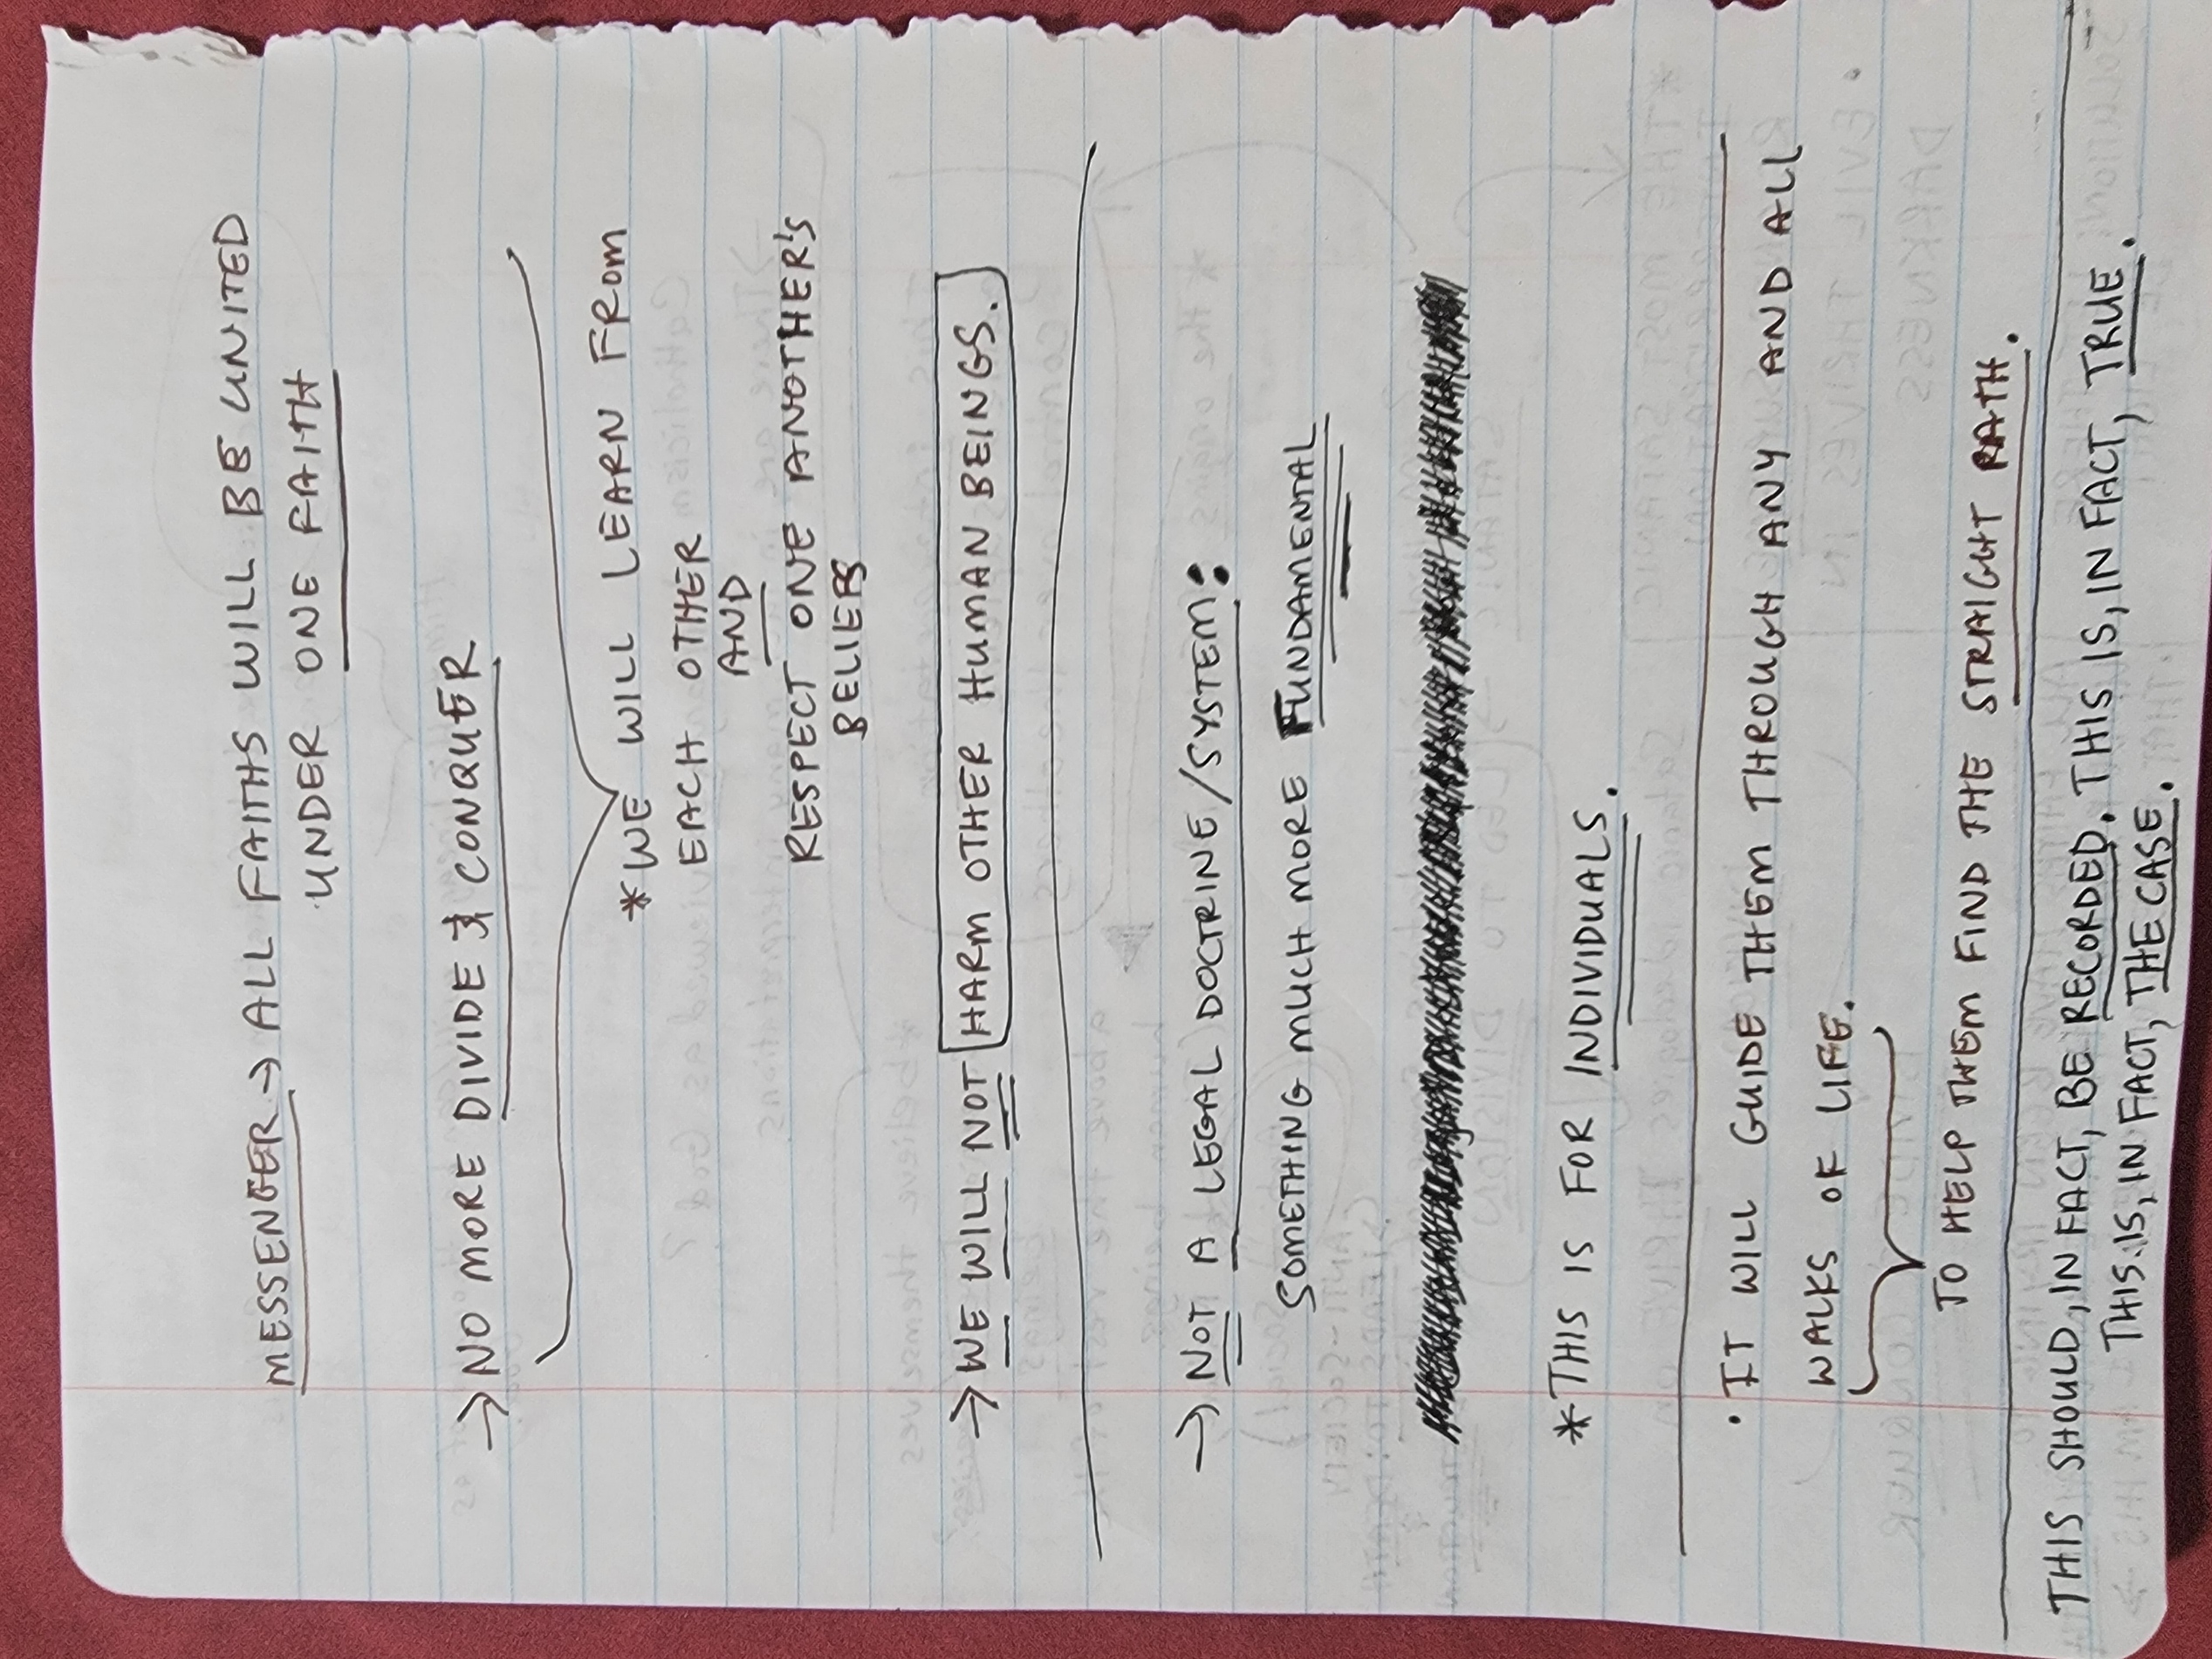 MESSENGER → ALL FAITHS WILL BE UNITED
UNDER ONE FAITH
→ NO MORE DIVIDE & CONQUER
* WE WILL LEARN FROM
EACH OTHER
AND
RESPECT ONE ANOTHER'S
BELIEFS
→ WE WILL NOT HARM OTHER HUMAN BEINGS.
→ NOT A LEGAL DOCTRINE/SYSTEM:
SOMETHING MUCH MORE FUNDAMENTAL
* THIS IS FOR INDIVIDUALS.
• IT WILL GUIDE THEM THROUGH ANY AND ALL
WALKS OF LIFE.
TO HELP THEM FIND THE STRAIGHT PATH.
THIS SHOULD, IN FACT, BE RECORDED. THIS IS, IN FACT, TRUE.
THIS IS, IN FACT, THE CASE.